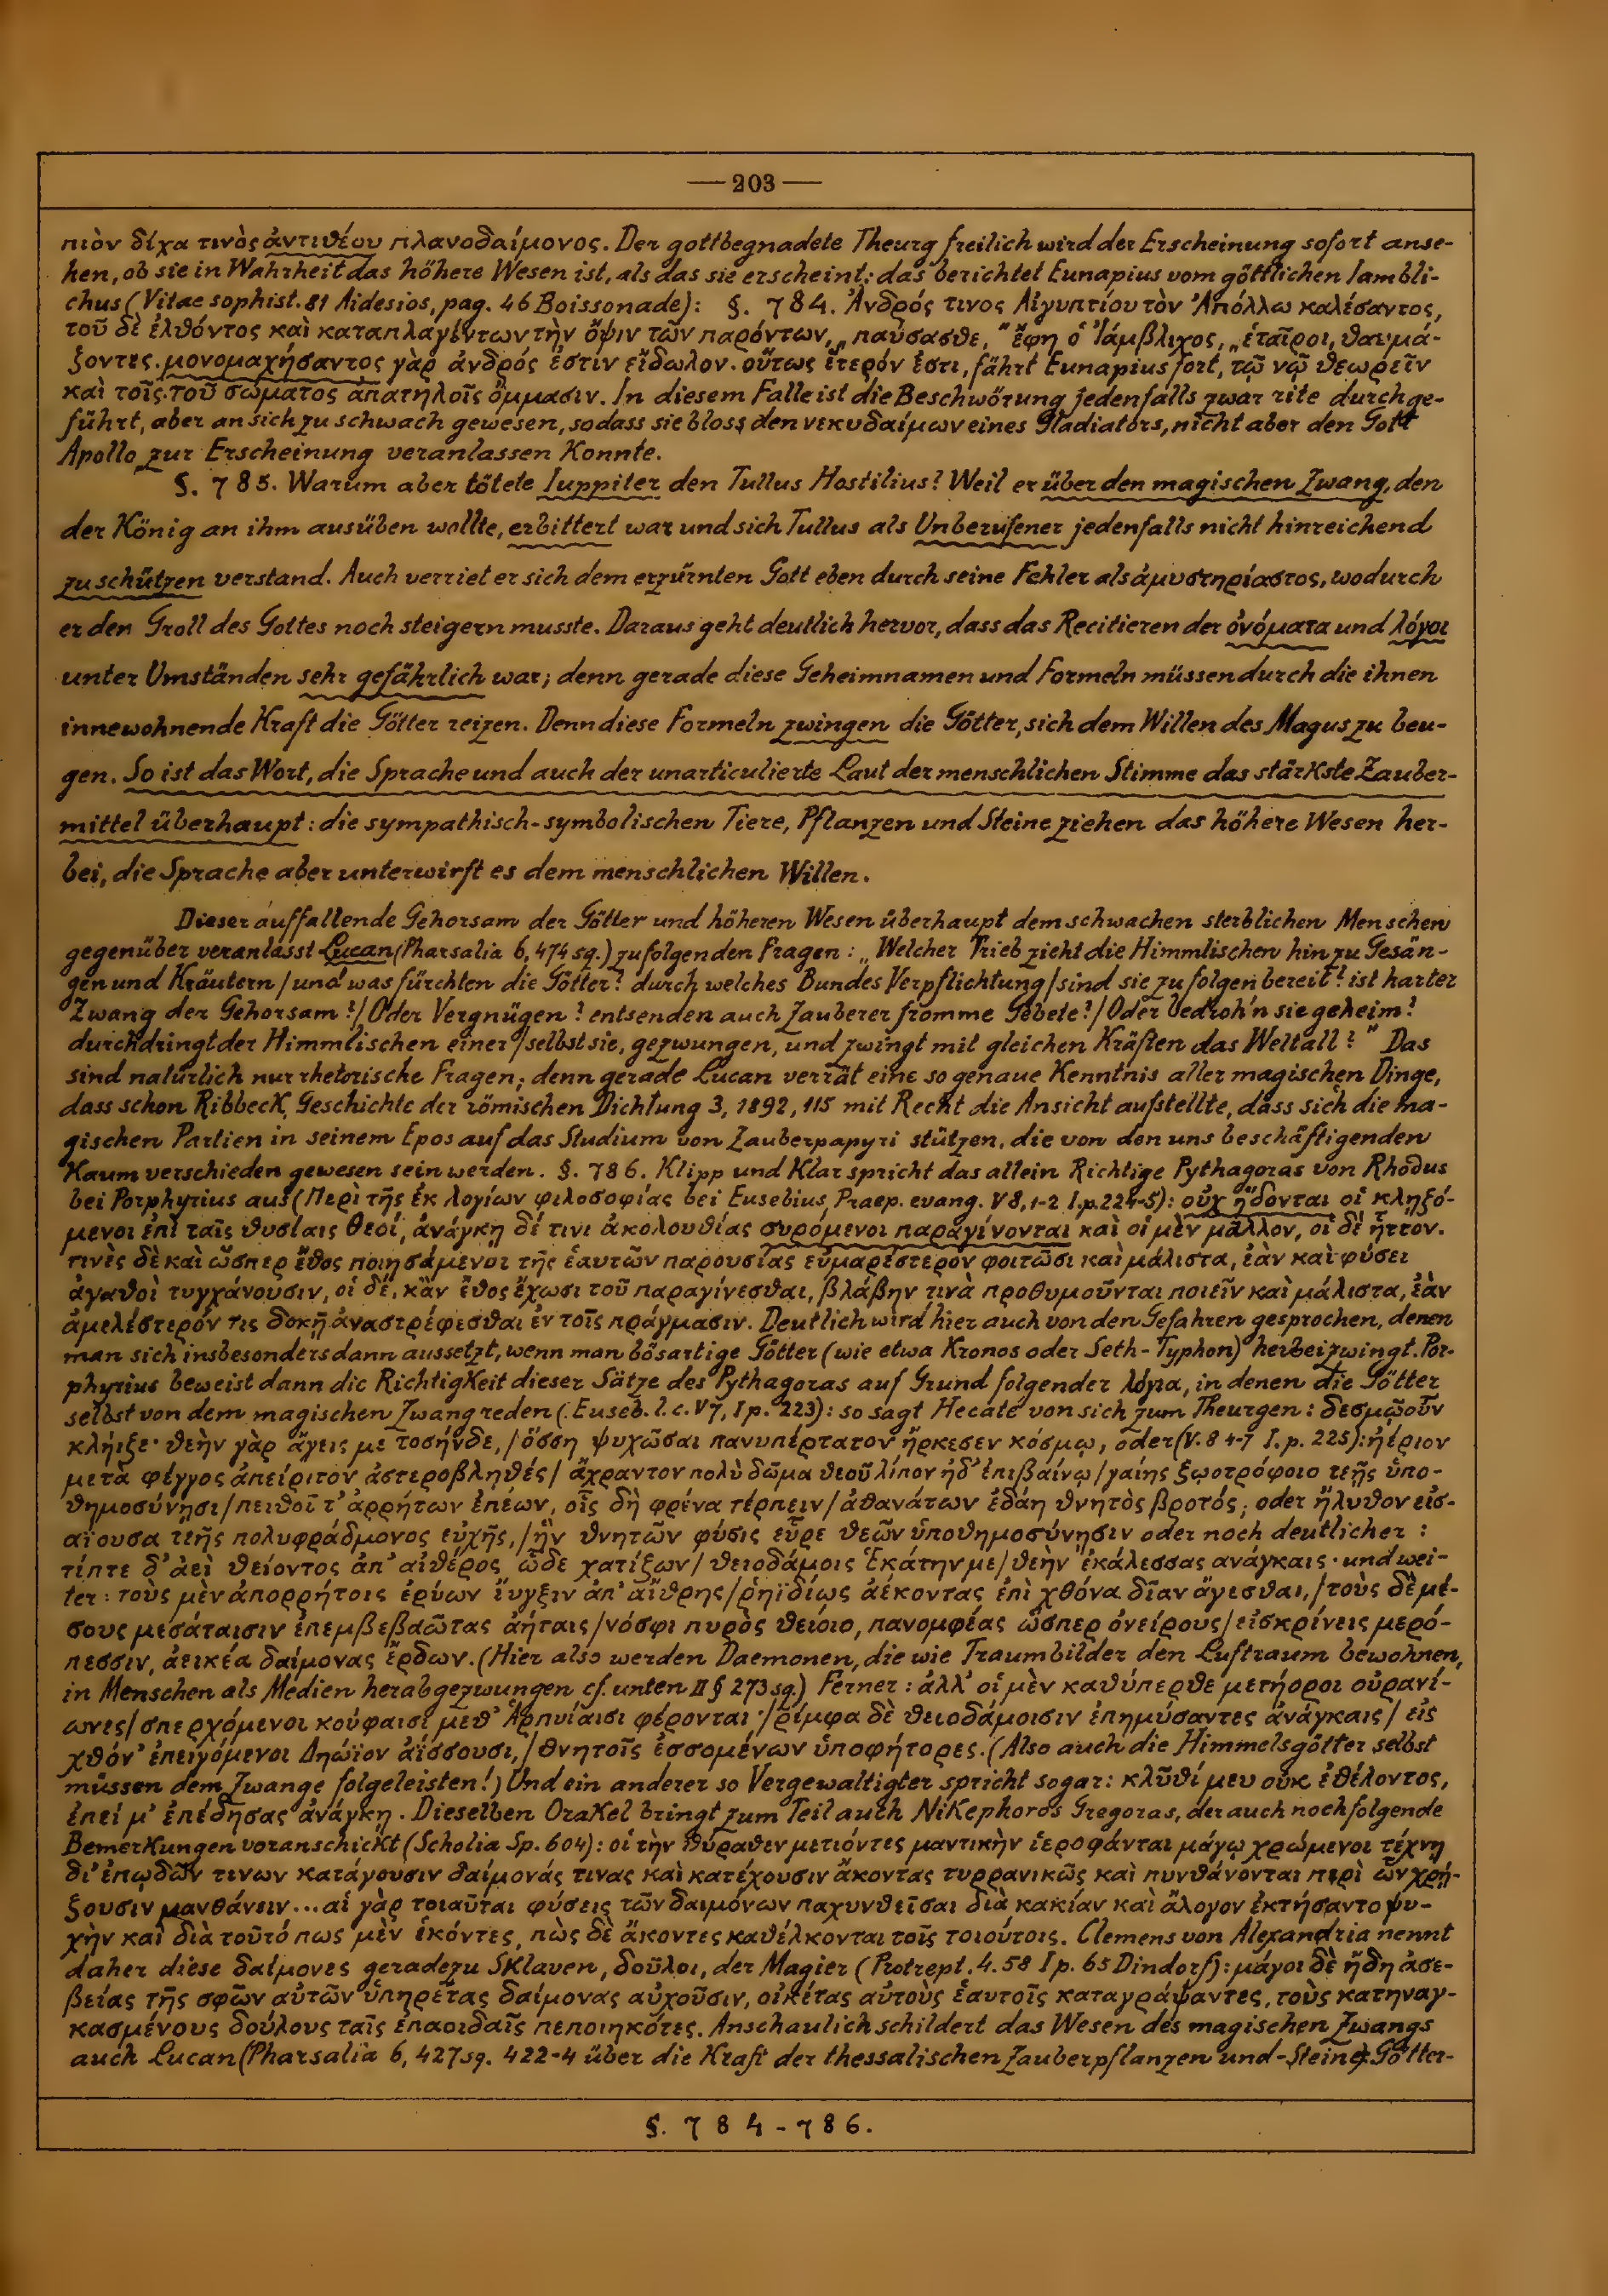 — 203 —
πιὸν δίχα τινὸς ἀντιθέου πλανοδαίμονος. Der gottbegnadete Theurg freilich wird der Erscheinung sofort anse-
hen, ob sie in Wahrheit das höhere Wesen ist, als das sie erscheint; das berichtet Eunapius vom göttlichen Iambli-
chus (Vitae sophist. 81 Aidesios, pag. 46 Boissonade): §. 784. Ἀνδρός τινος Αἰγυπτίου τὸν Ἀπόλλω καλέσαντος,
τοῦ δὲ ἐλθόντος καὶ καταπλαγέντων τὴν ὄψιν τῶν παρόντων, „παύσασθε," ἔφη ὁ Ἰάμβλιχος, „ἑταῖροι, θαυμά-
ζοντες. μονομαχήσαντος γὰρ ἀνδρός ἐστιν εἴδωλον. οὕτως ἕτερόν ἐστι, fährt Eunapius fort, τῷ νῷ θεωρεῖν
καὶ τοῖς τοῦ σώματος ἀπατηλοῖς ὄμμασιν. In diesem Falle ist die Beschwörung jedenfalls zwar rite durchge-
führt, aber an sich zu schwach gewesen, sodass sie bloss den νεκυδαίμων eines Gladiators, nicht aber den Gott
Apollo zur Erscheinung veranlassen Konnte.
§. 785. Warum aber tötete Iuppiter den Tullus Hostilius? Weil er über den magischen Zwang, den
der König an ihm ausüben wollte, erbittert war und sich Tullus als Unberufener jedenfalls nicht hinreichend
zu schützen verstand. Auch verriet er sich dem erzürnten Gott eben durch seine Fehler als ἀμυστηρίαστος, wodurch
er den Groll des Gottes noch steigern musste. Daraus geht deutlich hervor, dass das Recitieren der ὀνόματα und λόγοι
unter Umständen sehr gefährlich war; denn gerade diese Geheimnamen und Formeln müssen durch die ihnen
innewohnende Kraft die Götter reizen. Denn diese Formeln zwingen die Götter, sich dem Willen des Magus zu beu-
gen. So ist das Wort, die Sprache und auch der unarticulierte Laut der menschlichen Stimme das stärkste Zauber-
mittel überhaupt: die sympathisch-symbolischen Tiere, Pflanzen und Steine ziehen das höhere Wesen her-
bei, die Sprache aber unterwirft es dem menschlichen Willen.
Dieser auffallende Gehorsam der Götter und höheren Wesen überhaupt dem schwachen sterblichen Menschen
gegenüber veranlasst Lucan (Pharsalia 6, 474 sq.) zu folgenden Fragen: „Welcher Trieb zieht die Himmlischen hin zu Gesän-
gen und Kräutern / und was fürchten die Götter? durch welches Bundes Verpflichtung / sind sie zu folgen bereit? ist harter
Zwang der Gehorsam?/ Oder Vergnügen? entsenden auch Zauberer fromme Gebete?/ Oder bedroh'n sie geheim?
durchdringt der Himmlischen einer / selbst sie, gezwungen, und zwingt mit gleichen Kräften das Weltall?" Das
sind natürlich nur rhetorische Fragen; denn gerade Lucan verrät eine so genaue Kenntnis aller magischen Dinge,
dass schon Ribbeck, Geschichte der römischen Dichtung 3, 1892, 115 mit Recht die Ansicht aufstellte, dass sich die ma-
gischen Partien in seinem Epos auf das Studium von Zauberpapyri stützen, die von den uns beschäftigenden
Kaum verschieden gewesen sein werden. §. 786. Klipp und Klar spricht das allein Richtige Pythagoras von Rhodus
bei Porphyrius aus (Περὶ τῆς ἐκ λογίων φιλοσοφίας bei Eusebius, Praep. evang. V 8, 1-2 I, p. 224-5): οὐχ ἥδονται οἱ κληζό-
μενοι ἐπὶ ταῖς θυσίαις θεοί, ἀνάγκῃ δέ τινι ἀκολουθίας συρόμενοι παραγίνονται καὶ οἱ μὲν μᾶλλον, οἱ δὲ ἧττον.
τινὲς δὲ καὶ ὥσπερ ἔθος ποιησάμενοι τῆς ἑαυτῶν παρουσίας εὐμαρέστερον φοιτῶσι καὶ μάλιστα, ἐὰν καὶ φύσει
ἀγαθοὶ τυγχάνουσιν, οἱ δέ, κἂν ἔθος ἔχωσι τοῦ παραγίνεσθαι, βλάβην τινὰ προθυμοῦνται ποιεῖν καὶ μάλιστα, ἐὰν
ἀμελέστερόν τις δοκῇ ἀναστρέφεσθαι ἐν τοῖς πράγμασιν. Deutlich wird hier auch von den Gefahren gesprochen, denen
man sich insbesonders dann aussetzt, wenn man bösartige Götter (wie etwa Kronos oder Seth-Typhon) herbeizwingt. Por-
phyrius beweist dann die Richtigkeit dieser Sätze des Pythagoras auf Grund folgender λόγια, in denen die Götter
selbst von dem magischen Zwang reden (Euseb. l. c. V 7, I p. 223): so sagt Hecate von sich zum Theurgen: δεσμῷ οὖν
κλήιξε· θεὴν γὰρ ἄγεις με τοσήνδε, / ὅσση ψυχῶσαι πανυπέρτατον ἤρκεσεν κόσμῳ, oder (V. 8 4-7 I. p. 225): ἠέριον
μετὰ φέγγος ἀπείριτον ἀστεροβληθές / ἄχραντον πολὺ δῶμα θεοῦ λίπον ἠδ' ἐπιβαίνω / γαίης ζωοτρόφοιο τεῇς ὑπο-
θημοσύνῃσι / πειθοῖ τ' ἀρρήτων ἐπέων, οἷς δὴ φρένα τέρπειν / ἀθανάτων ἐδάη θνητὸς βροτός; oder ἤλυθον εἰσ-
αΐουσα τεῆς πολυφράδμονος εὐχῆς, / ἣν θνητῶν φύσις εὗρε θεῶν ὑποθημοσύνῃσιν oder noch deutlicher:
τίπτε δ' ἀεὶ θείοντος ἀπ' αἰθέρος ὧδε χατίζων / θειοδάμοις Ἑκάτην με / θεὴν ἐκάλεσσας ἀνάγκαις· und wei-
ter: τοὺς μὲν ἀπορρήτοις ἐρύων ἴυγξιν ἀπ' αἴθρης / ῥηϊδίως ἀέκοντας ἐπὶ χθόνα δῖαν ἄγεσθαι, / τοὺς δὲ μέ-
σους μεσάταισιν ἐπεμβεβαῶτας ἀήταις / νόσφι πυρὸς θείοιο, πανομφέας ὥσπερ ὀνείρους / εἰσκρίνεις μερό-
πεσσιν, ἀεικέα δαίμονας ἔρδων. (Hier also werden Daemonen, die wie Traumbilder den Luftraum bewohnen,
in Menschen als Medien herabgezwungen cf. unten II § 273 sq.) Ferner: ἀλλ' οἱ μὲν καθύπερθε μετήοροι οὐρανί-
ωνες / σπερχόμενοι κούφαισι μεθ' Ἁρπυίαισι φέρονται, / ῥίμφα δὲ θειοδάμοισιν ἐπημύσαντες ἀνάγκαις / εἰς
χθόν' ἐπειγόμενοι Δηώϊον ἀΐσσουσι, / θνητοῖς ἐσσομένων ὑποφήτορες. (Also auch die Himmelsgötter selbst
müssen dem Zwange folgeleisten!) Und ein anderer so Vergewaltigter spricht sogar: κλῦθί μευ οὐκ ἐθέλοντος,
ἐπεί μ' ἐπέδησας ἀνάγκῃ. Dieselben Orakel bringt zum Teil auch Nikephoros Gregoras, der auch noch folgende
Bemerkungen voranschickt (Scholia Sp. 604): οἱ τὴν θύραθεν μετιόντες μαντικὴν ἱεροφάνται μάγῳ χρώμενοι τέχνῃ
δι' ἐπῳδῶν τινων κατάγουσιν δαίμονάς τινας καὶ κατέχουσιν ἄκοντας τυρρανικῶς καὶ πυνθάνονται περὶ ὧν χρῄ-
ζουσιν μανθάνειν...αἱ γὰρ τοιαῦται φύσεις τῶν δαιμόνων παχυνθεῖσαι διὰ κακίαν καὶ ἄλογον ἐκτήσαντο ψυ-
χὴν καὶ διὰ τοῦτό πως μὲν ἑκόντες, πὼς δὲ ἄκοντες καθέλκονται τοῖς τοιούτοις. Clemens von Alexandria nennt
daher diese δαίμονες geradezu Sklaven, δοῦλοι, der Magier (Protrept. 4. 58 I p. 65 Dindorf): μάγοι δὲ ἤδη ἀσε-
βείας τῆς σφῶν αὐτῶν ὑπηρέτας δαίμονας αὐχοῦσιν, οἰκέτας αὐτοὺς ἑαυτοῖς καταγράψαντες, τοὺς κατηναγ-
κασμένους δούλους ταῖς ἐπαοιδαῖς πεποιηκότες. Anschaulich schildert das Wesen des magischen Zwangs
auch Lucan (Pharsalia 6, 427 sq. 422-4 über die Kraft der thessalischen Zauberpflanzen und -Steine): Götter-
§. 784-786.